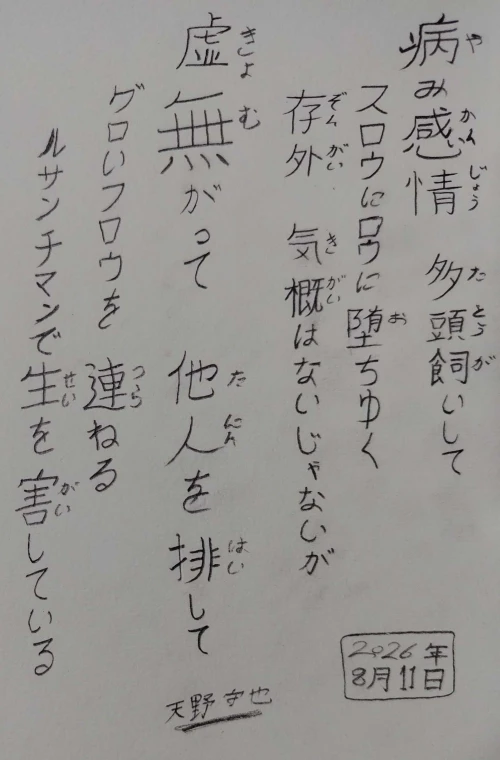 病み感情 多頭飼いして
スロウにロウに堕ちゆく
存外 気概はないじゃないが
虚無がって 他人を排して
グロいフロウを 連ねる
ルサンチマンで生を害している
2026年
8月11日
天野 守也